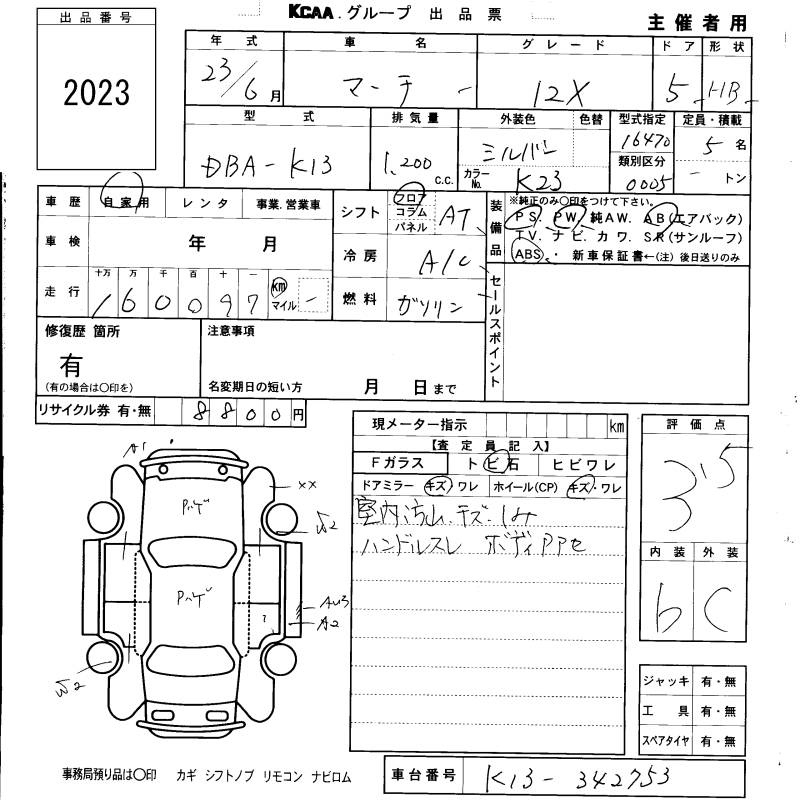 KCAA.グループ 出品票
主催者用
出品番号
2023
年式 車名 グレード ドア 形状
23/6月 マーチ 12X 5 HB
型式 排気量 外装色 色替 型式指定 定員・積載
DBA-K13 1,200 c.c. シルバー カラーNo. K23 16470 5名
類別区分 0005 トン
車歴 自家用 レンタ 事業.営業車
シフト フロア コラム パネル AT
装備品 ※純正のみ〇印をつけて下さい。
PS. PW. 純AW. AB(エアバック)
TV. ナビ. カワ. S.R(サンルーフ)
ABS. ・ 新車保証書←(注) 後日送りのみ
車検 年 月
冷房 A/C
走行 十万 万 千 百 十 一
160097 km マイル
燃料 ガソリン
セールスポイント
修復歴 箇所
有
(有の場合は〇印を)
注意事項
名変期日の短い方 月 日まで
リサイクル券 有・無 8800円
現メーター指示 km
【査定員記入】
Fガラス トビ石 ヒビワレ
ドアミラー キズ ワレ ホイール(CP) キズ・ワレ
室内汚れ.キズ.しみ
ハンドルスレ
評価点
3.5
内装 外装
b C
A1
××
Pハゲ
W2
Pハゲ
AU3
A2
W2
ジャッキ 有・無
工具 有・無
スペアタイヤ 有・無
事務局預り品は〇印 カギ シフトノブ リモコン ナビロム
車台番号 K13-342753